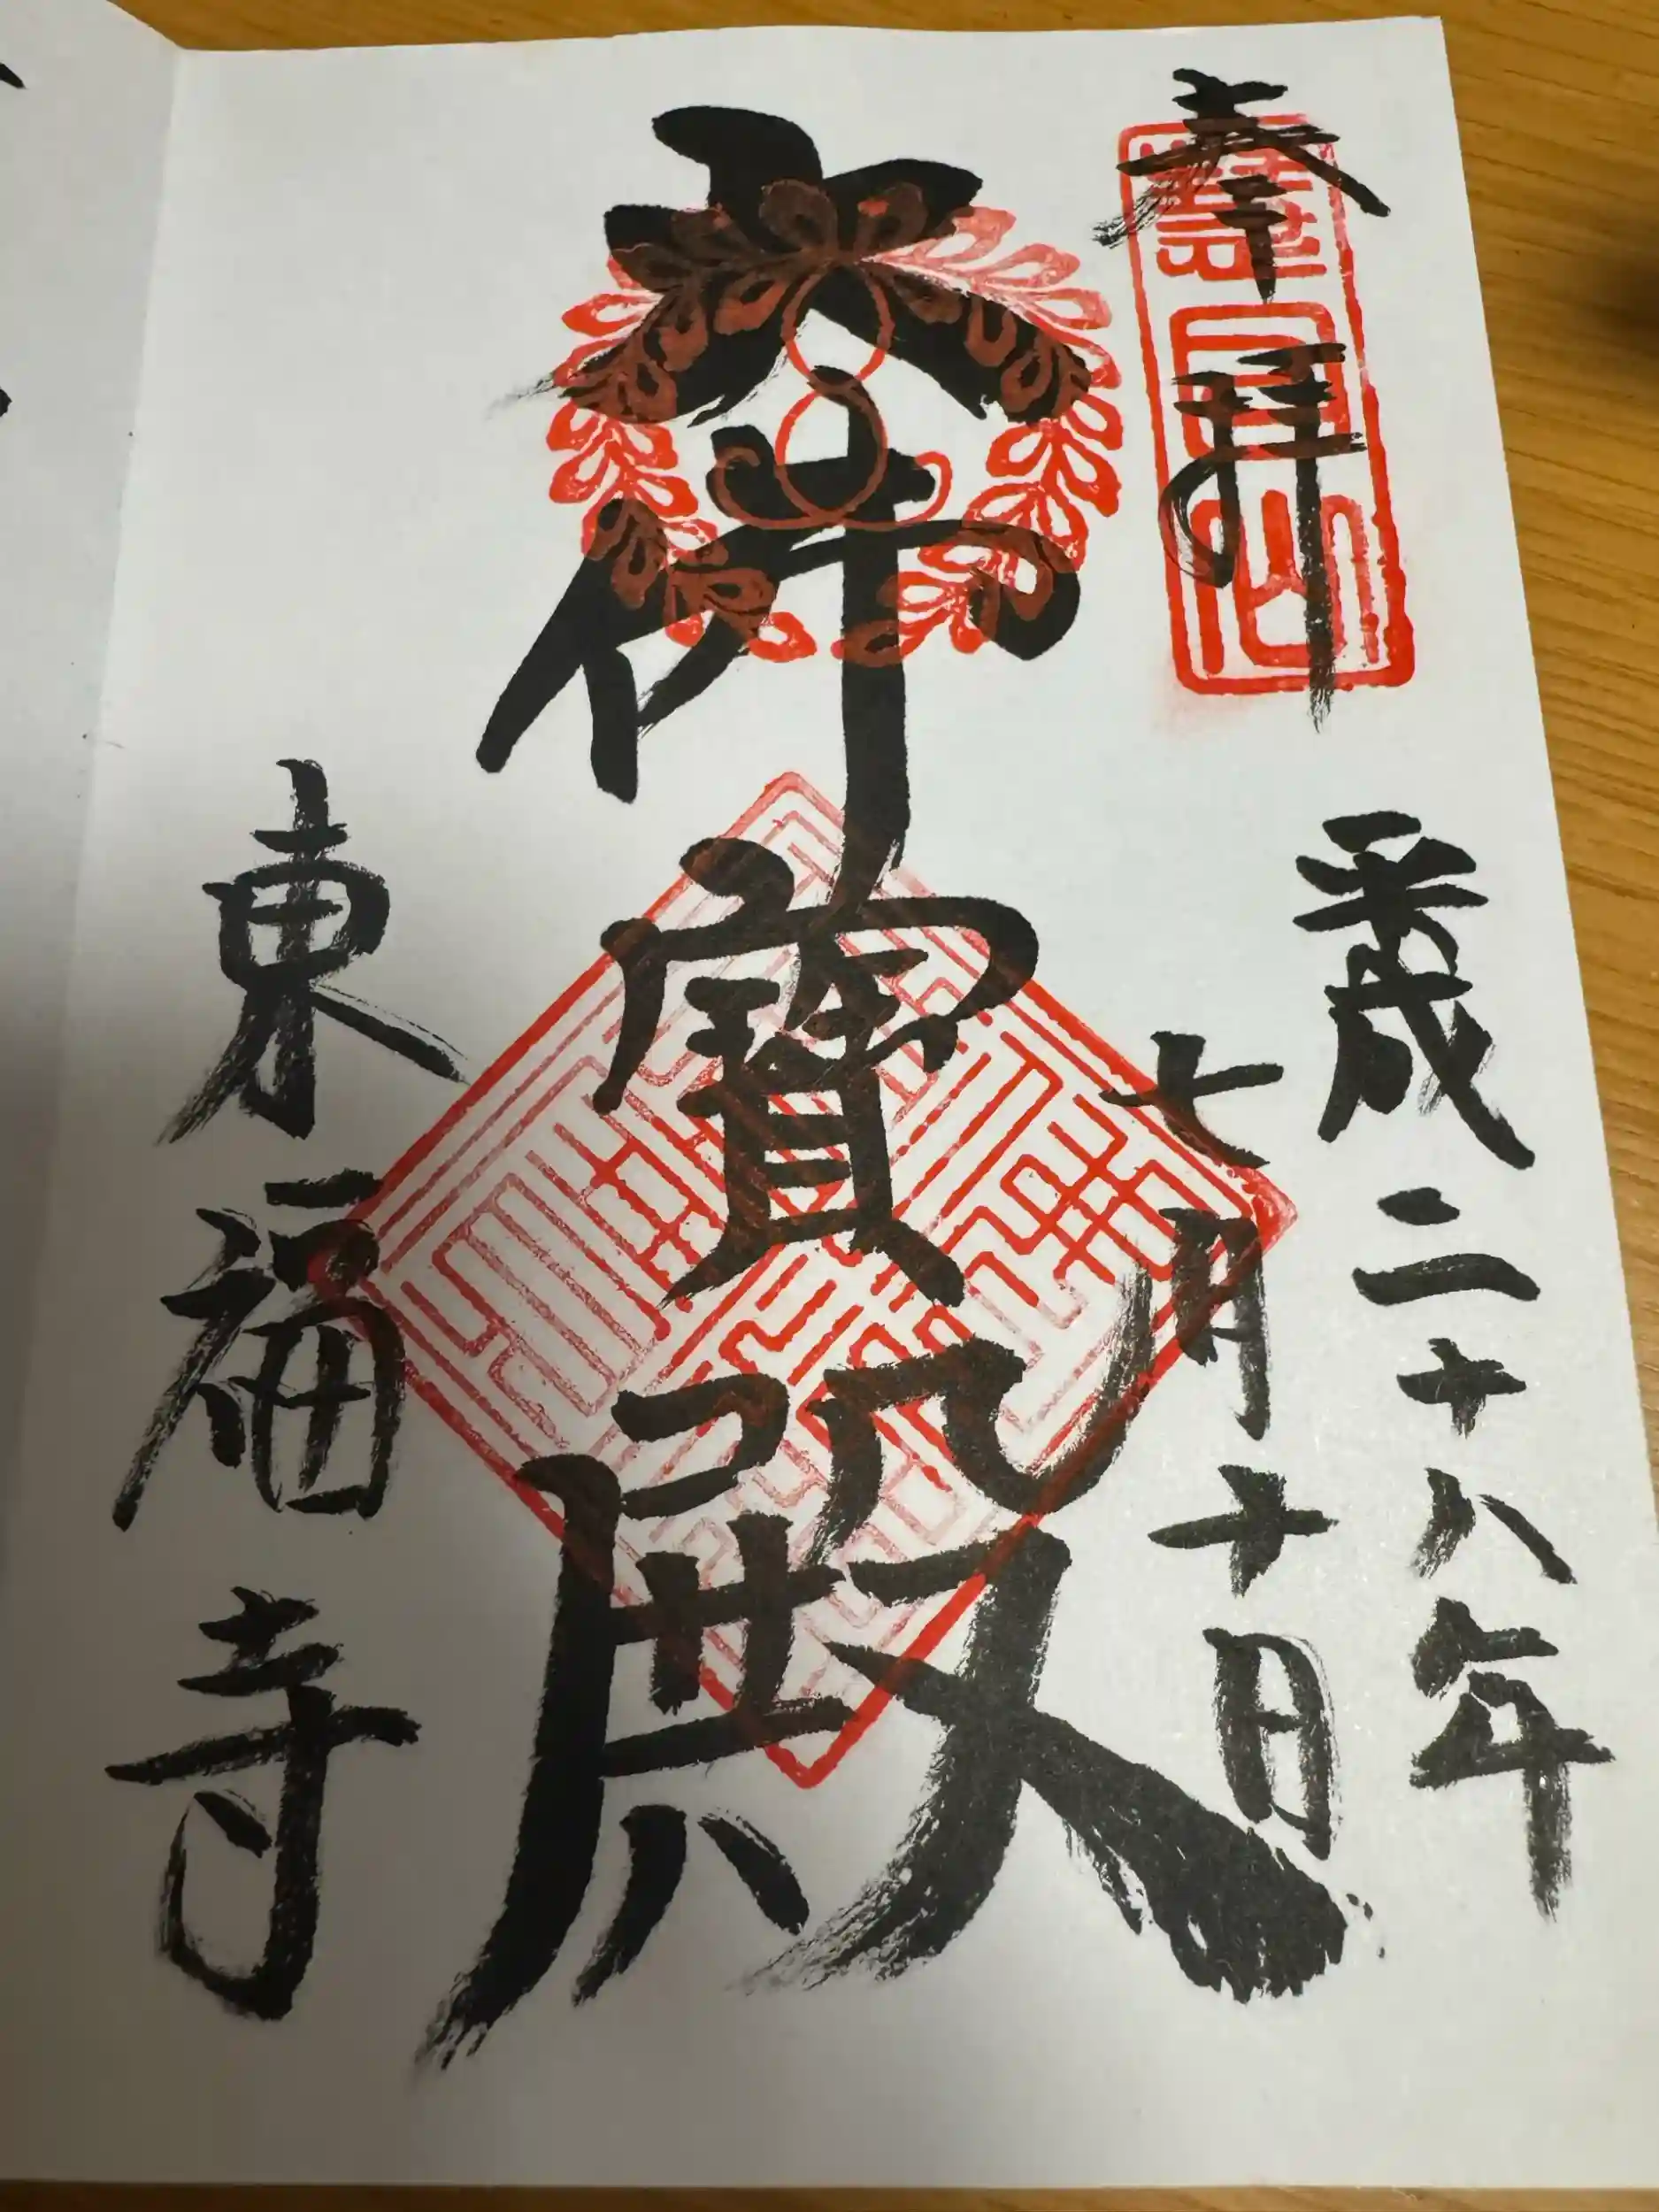 奉拝
慧日山
平成二十八年
七月十日
大佛寶殿
東福寺